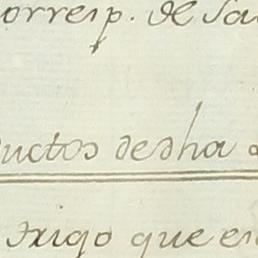 orresp. de Sa
uctos de dha a
Trigo que es